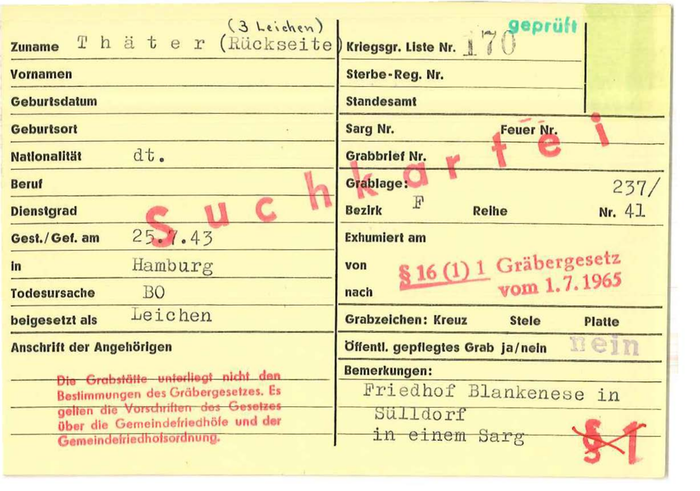 (3 Leichen)
Zuname Thäter (Rückseite)
Vornamen
Geburtsdatum
Geburtsort
Nationalität dt.
Beruf
Dienstgrad
Gest./Gef. am 25.7.43
in Hamburg
Todesursache BO
beigesetzt als Leichen
Anschrift der Angehörigen
Die Grabstätte unterliegt nicht den
Bestimmungen des Gräbergesetzes. Es
gelten die Vorschriften des Gesetzes
über die Gemeindefriedhöfe und der
Gemeindefriedhofsordnung.
Suchkartei
geprüft
Kriegsgr. Liste Nr. 170
Sterbe-Reg. Nr.
Standesamt
Sarg Nr. Feuer Nr.
Grabbrief Nr.
Grablage: 237/
Bezirk F Reihe Nr. 41
Exhumiert am
von § 16 (1) 1 Gräbergesetz
nach vom 1.7.1965
Grabzeichen: Kreuz Stele Platte
Öffentl. gepflegtes Grab ja/nein nein
Bemerkungen:
Friedhof Blankenese in
Sülldorf
in einem Sarg
§ 1